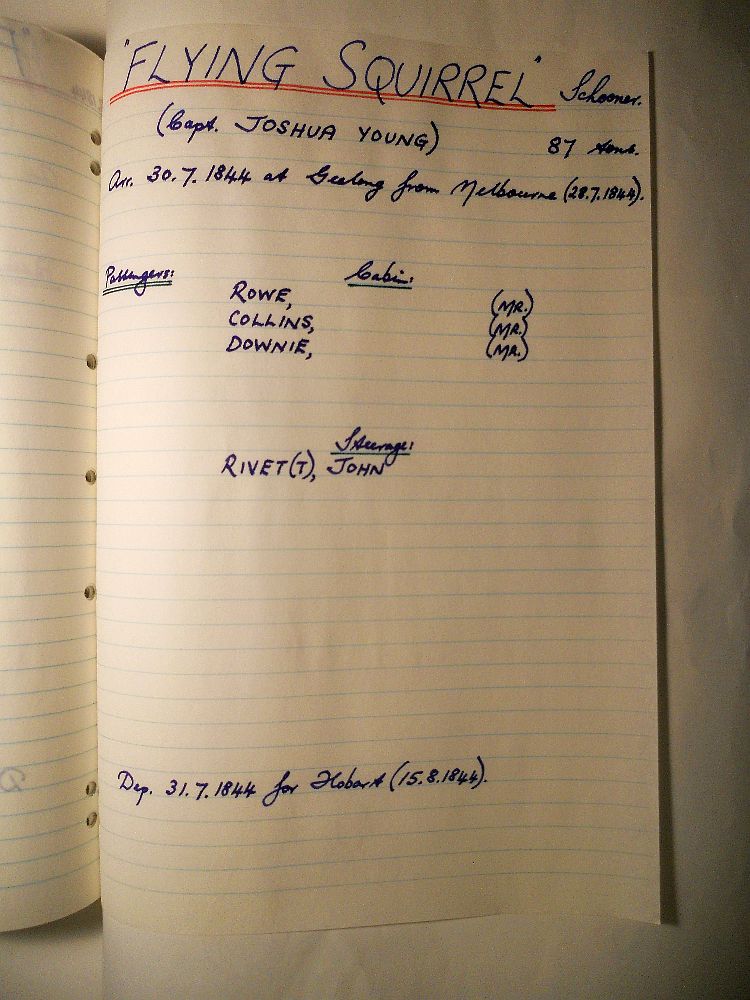 "FLYING SQUIRREL" Schooner.
(Capt. JOSHUA YOUNG) 87 tons.
Arr. 30.7.1844 at Geelong from Melbourne (28.7.1844).
Passengers: Cabin:
ROWE, (MR.)
COLLINS, (MR.)
DOWNIE, (MR.)
Steerage:
RIVET(T), JOHN
Dep. 31.7.1844 for Hobart (15.8.1844).